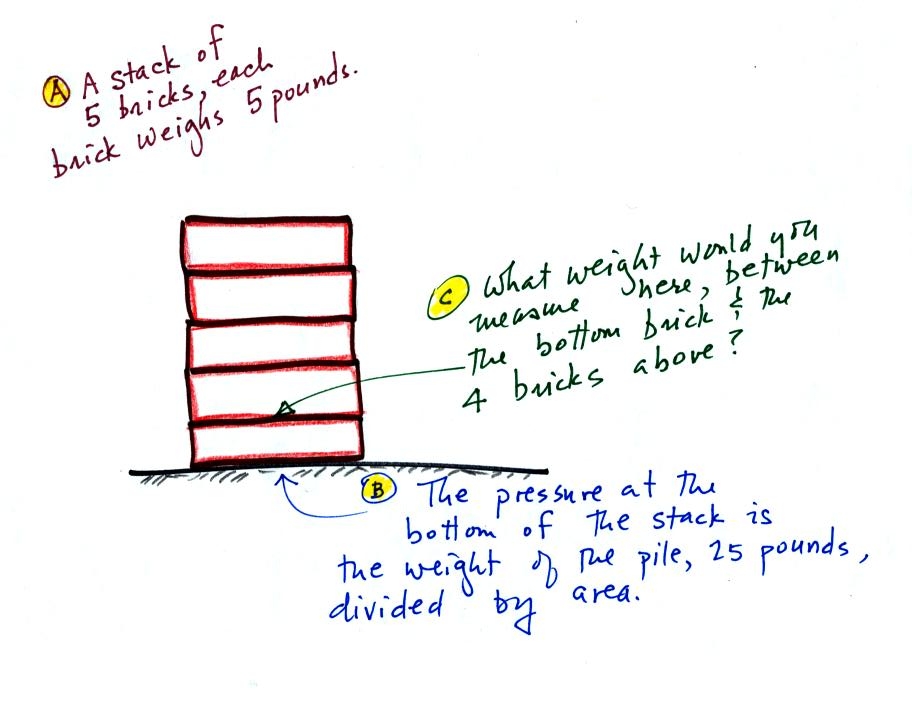 A A stack of
5 bricks, each
brick weighs 5 pounds.
C What weight would you
measure here, between
the bottom brick & the
4 bricks above?
B The pressure at the
bottom of the stack is
the weight of the pile, 25 pounds,
divided by area.